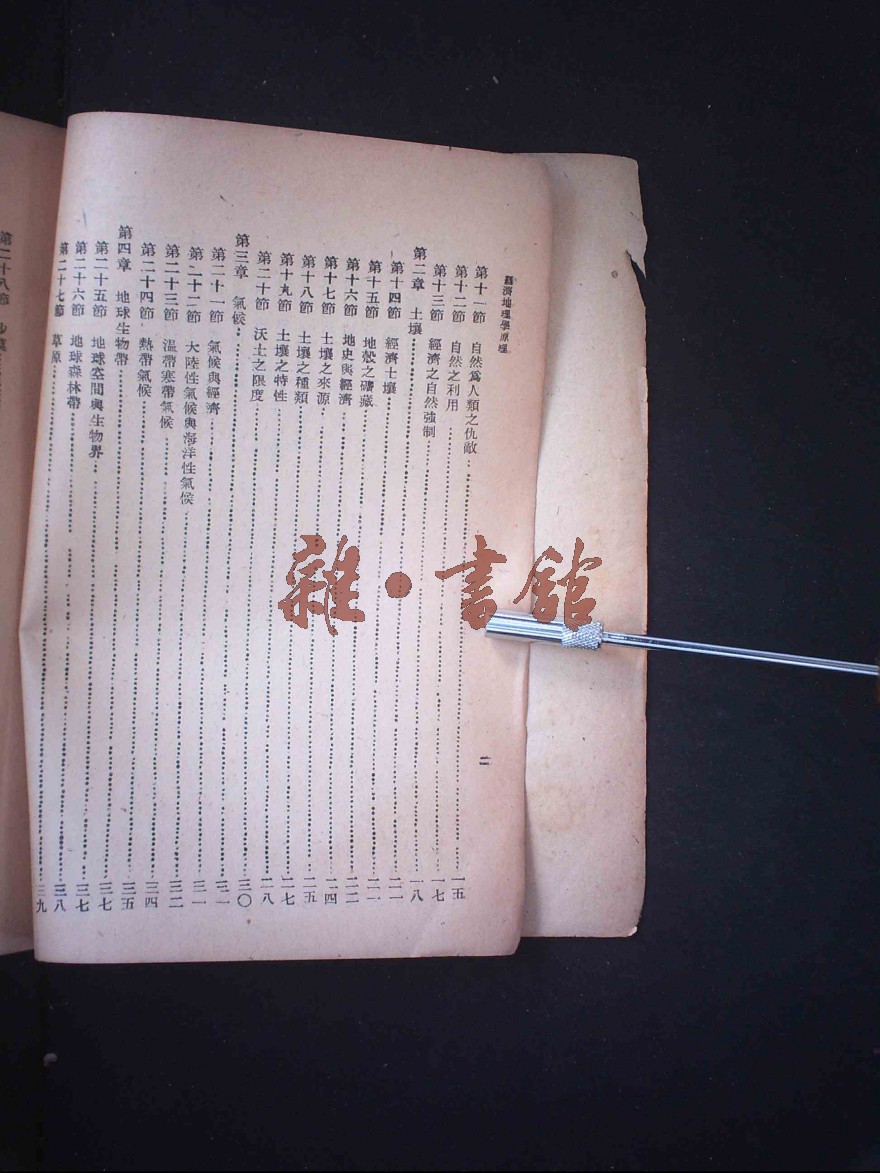 經濟地理學原理
第十一節　自然爲人類之仇敵……一五
第十二節　自然之利用……一七
第十三節　經濟之自然強制……一八
第二章　土壤……二一
第十四節　經濟土壤……二一
第十五節　地殼之礦藏……二二
第十六節　地史與經濟……二四
第十七節　土壤之來源……二五
第十八節　土壤之種類……二七
第十九節　土壤之特性……二八
第二十節　沃土之限度……三〇
第三章　氣候……三一
第二十一節　氣候與經濟……三一
第二十二節　大陸性氣候與海洋性氣候……三二
第二十三節　溫帶寒帶氣候……三四
第二十四節　熱帶氣候……三五
第四章　地球生物帶……三七
第二十五節　地球空間與生物界……三七
第二十六節　地球森林帶……三八
第二十七節　草原……三九
二
第二十八節
雜·書館